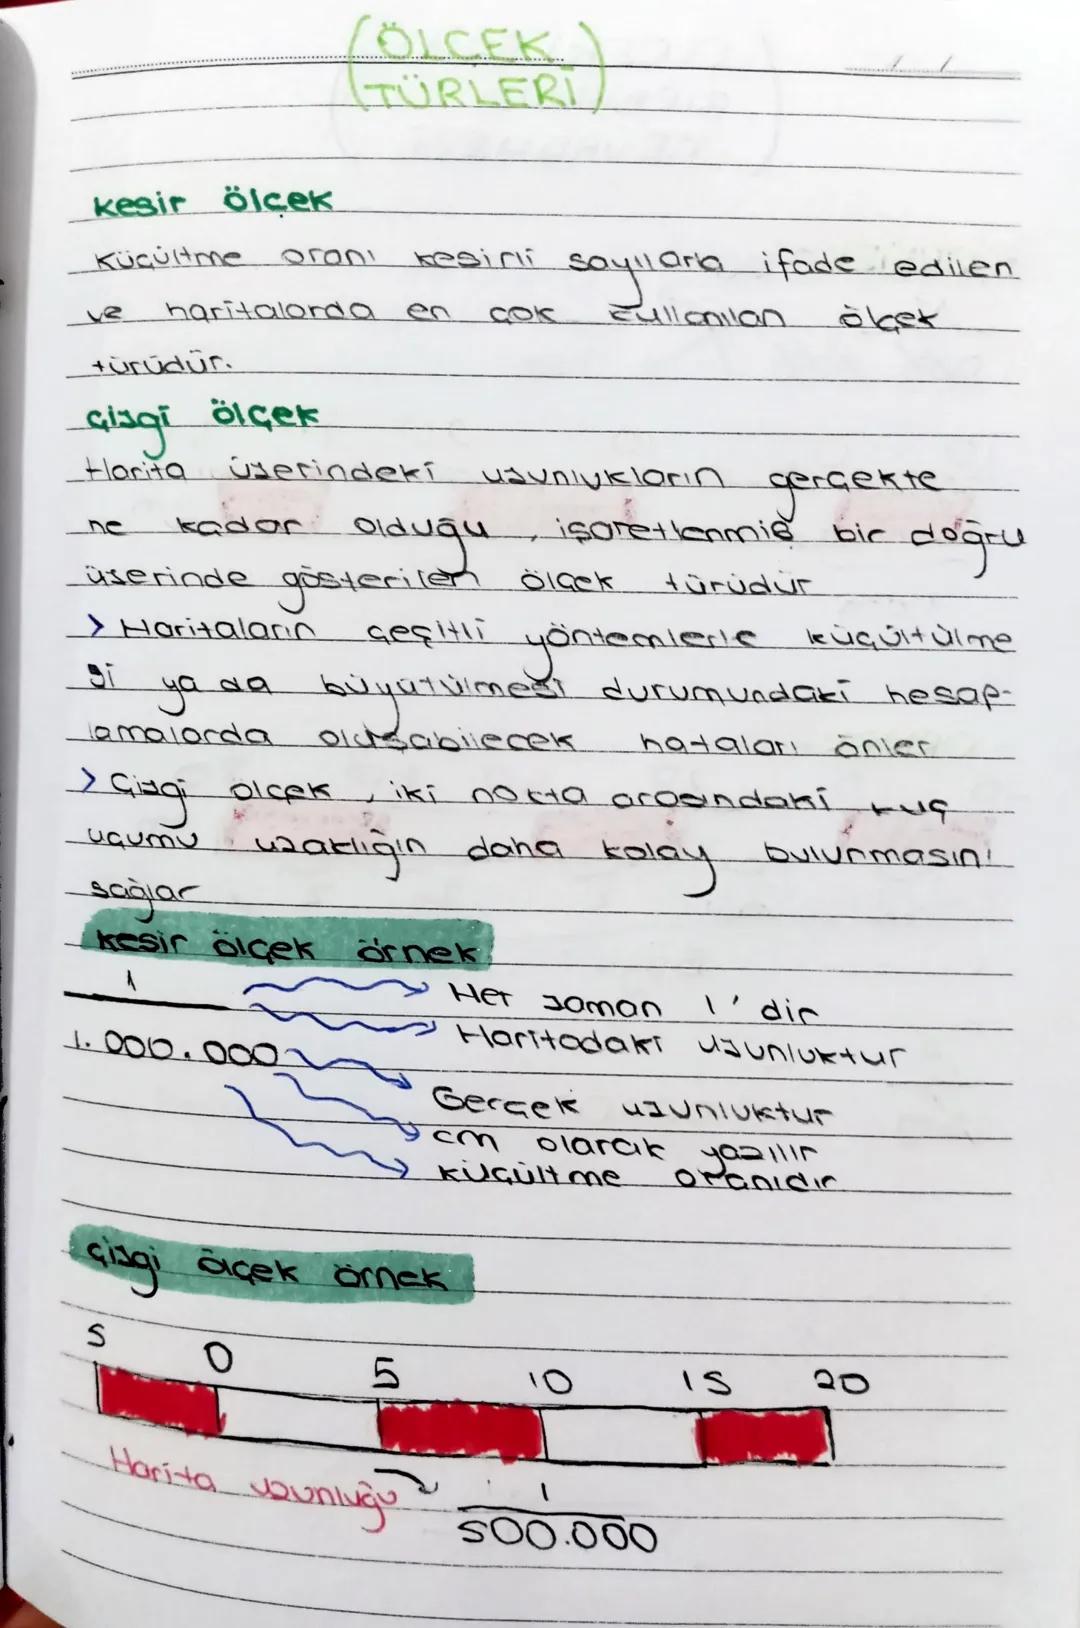 (ÖLÇEK
TÜRLERİ)
kesir ölçek
Küçültme oranı kesirli sayılarla ifade edilen
ve haritalarda en çok kullanılan ölçek
türüdür.
Çizgi ölçek
Harita üzerindeki uzunlukların gerçekte
ne kadar olduğu, işaretlenmiş bir doğru
üzerinde gösterilen ölçek türüdür
> Haritaların çeşitli yöntemlerle küçültülme
si ya da büyütülmesi durumundaki hesap-
lamalarda oluşabilecek hataları önler
> Çizgi ölçek, iki nokta arasındaki kuş
uçumu uzaklığın daha kolay bulunmasını
sağlar
kesir ölçek örnek
1
Her zaman 1'dir
Haritadaki uzunluktur
1.000.000
Gerçek uzunluktur
cm olarak yazılır
küçültme oranıdır
çizgi ölçek örnek
5 0 5 10 15 20
Harita uzunluğu
1
500.000